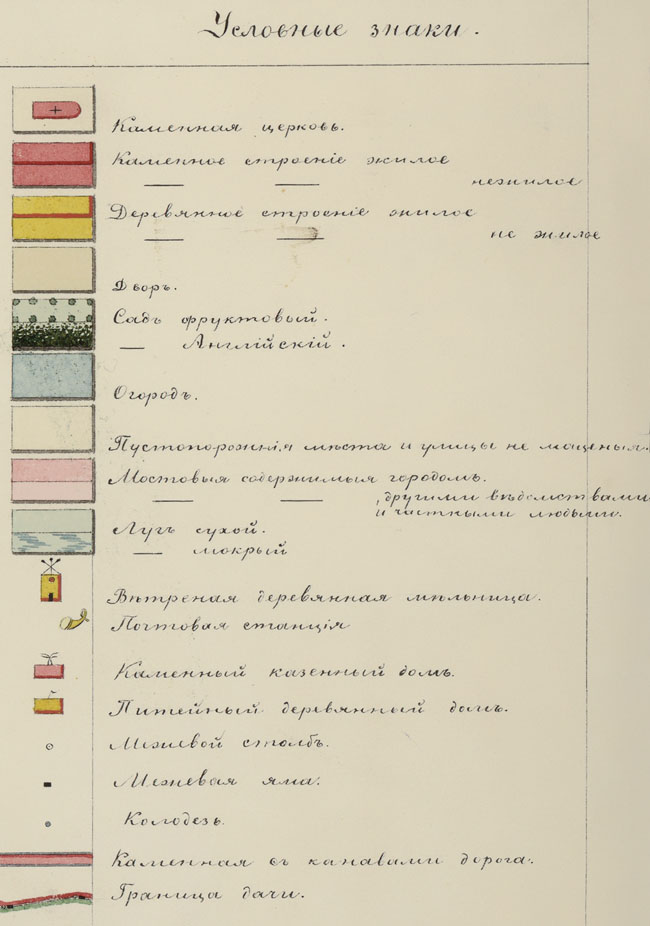 Условные знаки.
Каменная церковь.
Каменное строеніе жилое
— — нежилое
Деревянное строеніе жилое
— — не жилое
Дворъ.
Садъ фруктовый.
— Англійскій.
Огородъ.
Пустопорожнія мѣста и улицы не мощеныя.
Мостовыя содержимыя городомъ.
— — , другими вѣдомствами
и частными людьми.
Лугъ сухой.
— мокрый
Вѣтреная деревянная мѣльница.
Почтовая станція
Каменный казенный домъ.
Питейный деревянный домъ.
Межевой столбъ.
Межевая яма.
Колодезь
Каменная съ канавами дорога.
Граница дачи.